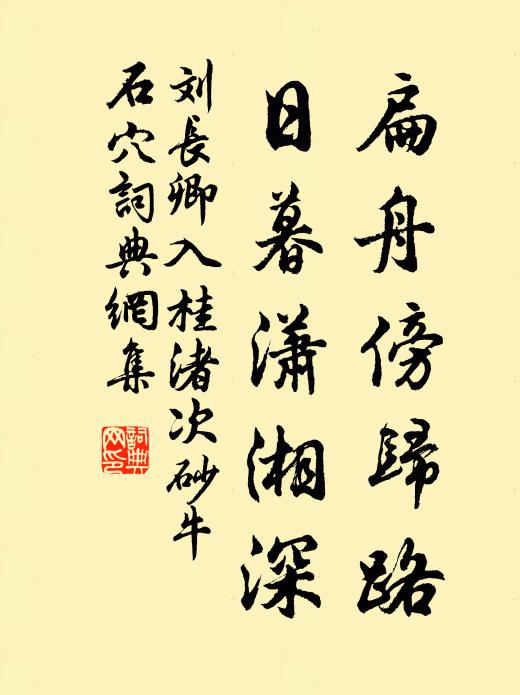 扁舟傍歸路
日暮瀟湘深
刘長卿入桂渚次砂牛
石穴詞典網集
詞典
网印